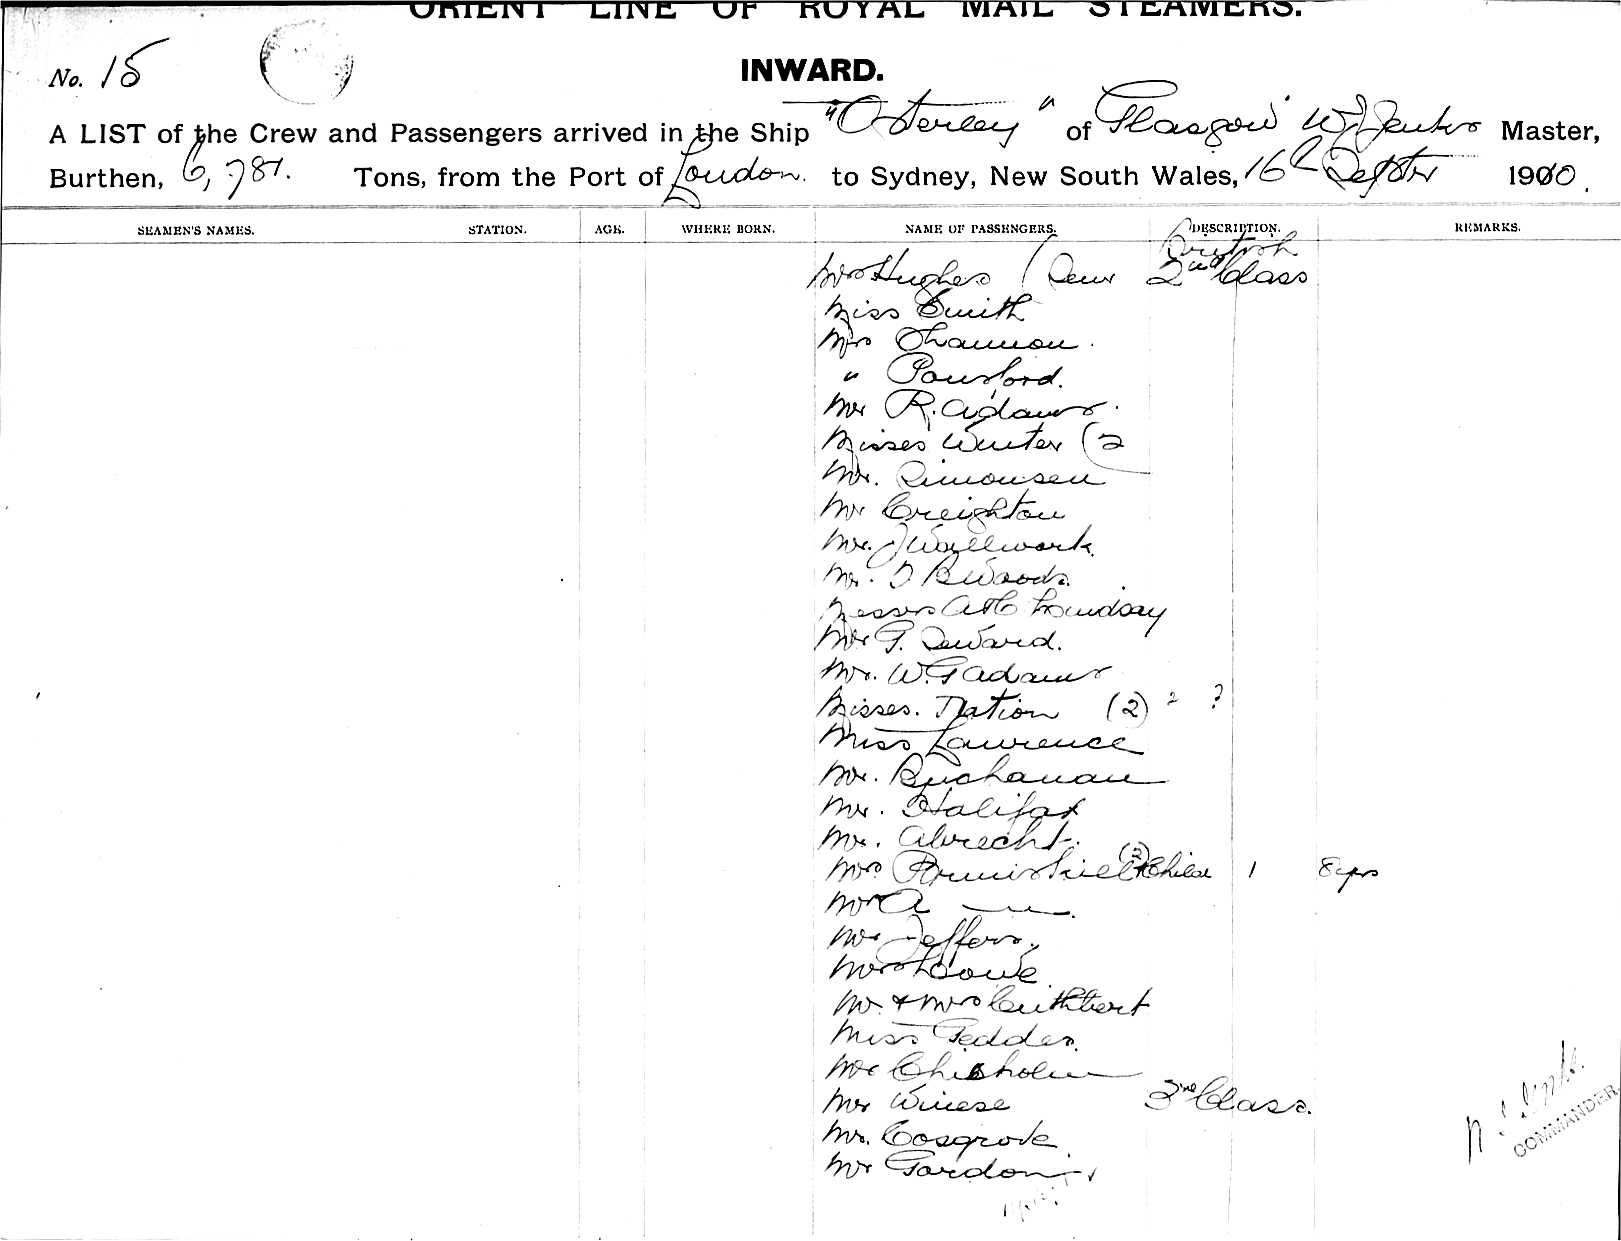 ORIENT LINE OF ROYAL MAIL STEAMERS.
No. 15
INWARD.
A LIST of the Crew and Passengers arrived in the Ship "Osterley" of Glasgow W J Jenks Master,
Burthen, 6,781. Tons, from the Port of London. to Sydney, New South Wales, 16th Septbr 1910.
SEAMEN'S NAMES. STATION. AGE. WHERE BORN. NAME OF PASSENGERS. DESCRIPTION. REMARKS.
British
Mrs Hughes 2nd Class
Miss Smith
Mrs Shannon.
" Ponsford.
Mr R. Adams.
Misses Winter (2
Mr. Simonsen
Mr Creighton
Mr. J Wallwork.
Mr. Woods.
Messrs Lindsay
Mr G. Seward.
Mr. W. G Adams
Misses. Nation (2) " ?
Miss Lawrence
Mr. Buchanan
Mr. Halifax
Mr. Albrecht.
Mrs Child 1 8 yrs
Mr A
Mr Jeffers.
Mrs Lowe
Mr. & Mrs Cuthbert
Miss Geddes.
Mr Chisholm
Mr Wiese 3rd Class.
Mr. Cosgrove
Mr Gordon
COMMANDER.